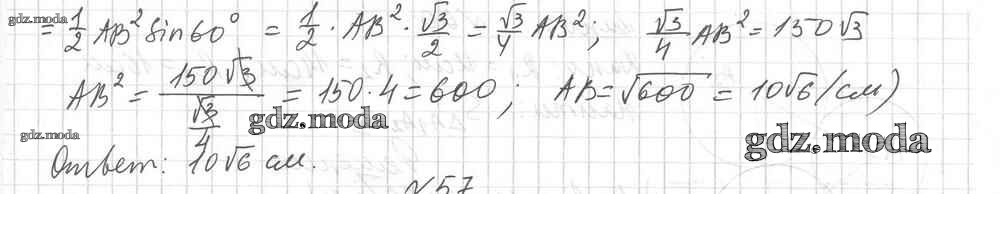 gdz.moda
= 1/2 AB² sin 60° = 1/2 · AB² · √3/2 = √3/4 AB²; √3/4 AB² = 150√3
AB² = 150√3 / (√3/4) = 150·4 = 600; AB = √600 = 10√6 (см)
gdz.moda
gdz.moda
gdz.moda
Ответ: 10√6 см.
№57